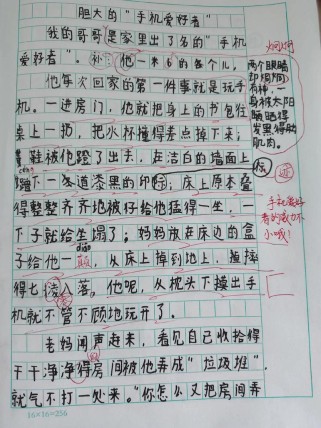 胆大的“手机爱好者”
我的哥哥是家里出了名的“手机
爱好者”。他一米6的各个儿，
他每次回家的第一件事就是玩手
机。一进房门，他就把身上的书包往
桌上一扔，把水杯撞得差点掉下来；
鞋被他蹬了出去，在洁白的墙面上
蹭下一道漆黑的印；床上原本叠
得整整齐齐地被仔给他猛得一坐，一
下子就给坐塌了；妈妈放在床边的盒
子给他一颠，从床上掉到地上，摔
得七凌八落。他呢，从枕头下摸出手
机就不管不顾地玩开了。
老妈闻声赶来，看见自己收拾得
干干净净得房间被他弄成“垃圾堆”
就气不打一处来。“你怎么又把房间弄
16×16=256
炯炯
两个眼睛
却炯炯
有神，一
身被太阳
晒得
发黑得
肌肉。
迹
手机爱好
者的威力不
小哦！